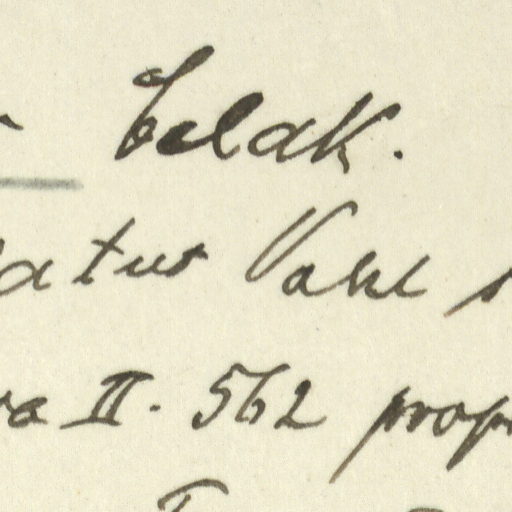 Čelak.
atus Vahl s
ra II. 562 prop